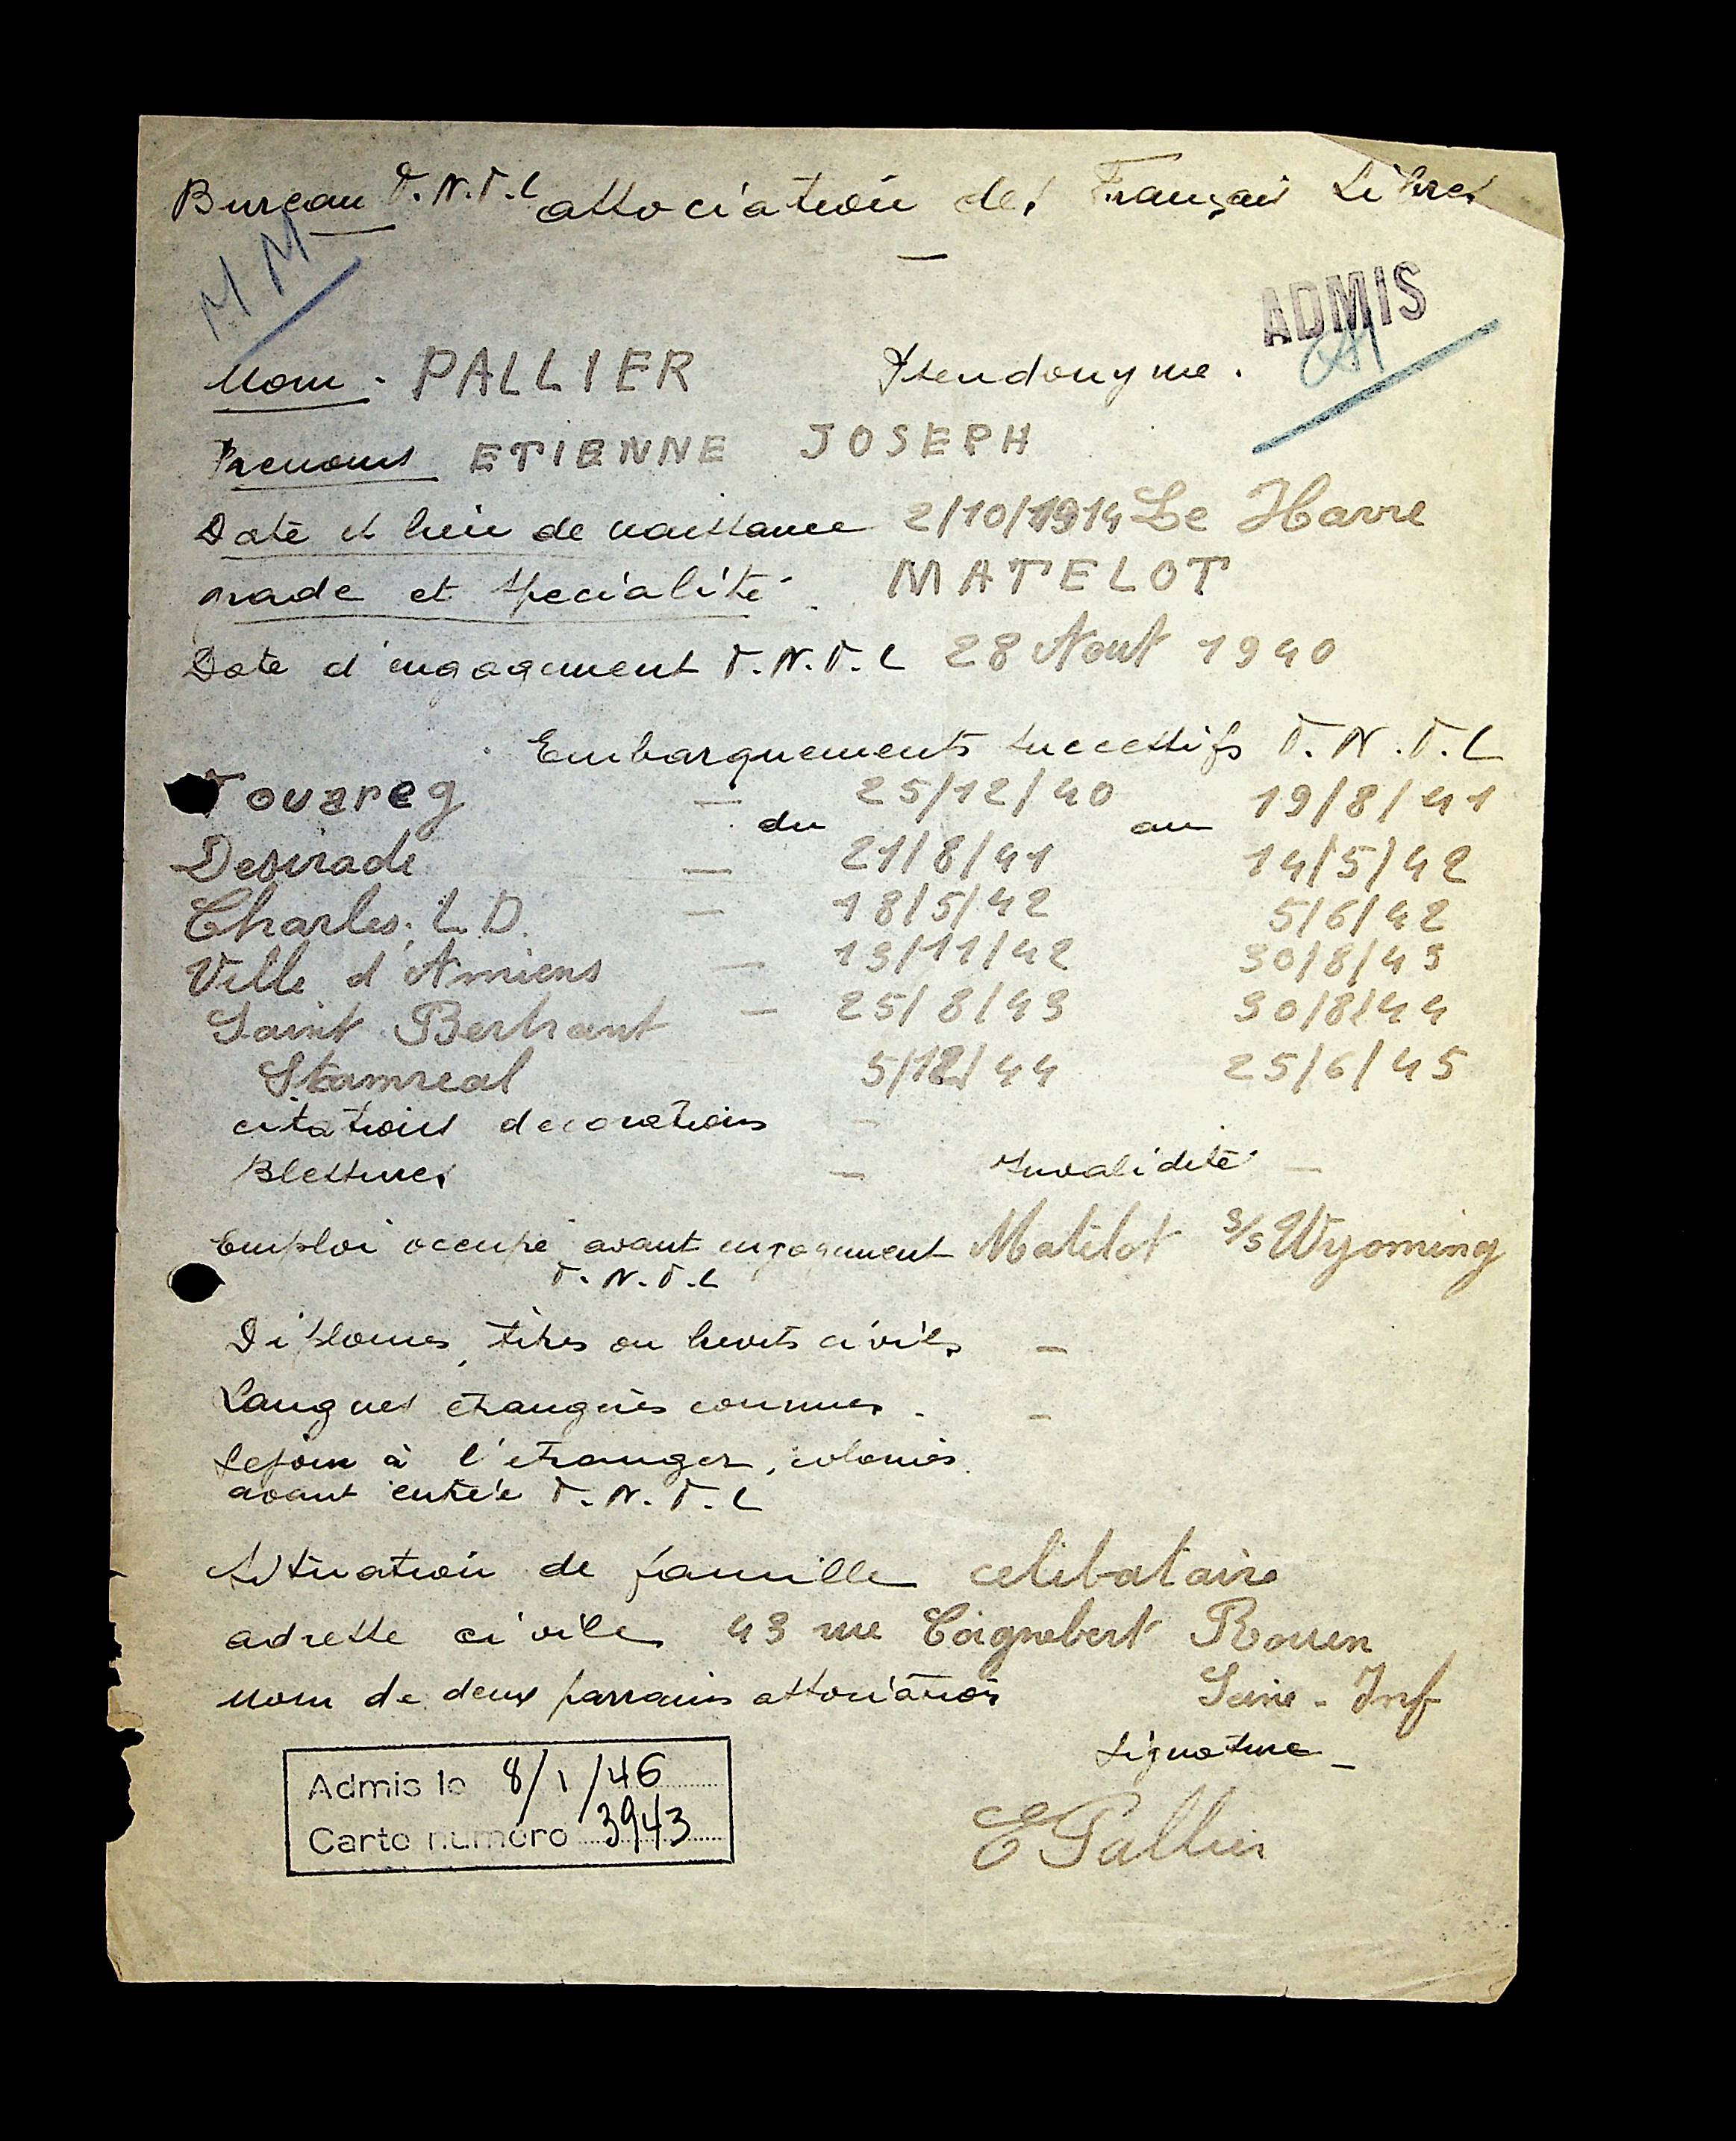 Bureau F.N.F.L association des Français Libres
MM
ADMIS
Nom. PALLIER Pseudonyme.
Prenoms ETIENNE JOSEPH
Date et lieu de naissance 2/10/1914 Le Havre
grade et specialité. MATELOT
Date d'engagement F.N.F.L 28 Aout 1940
Embarquements successifs F.N.F.L
Touareg — du 25/12/40 au 19/8/41
Desirade — 21/8/41 14/5/42
Charles. L.D. — 18/5/42 5/6/42
Ville d'Amiens — 13/11/42 30/8/43
Saint Bertrant — 25/8/43 30/8/44
Stamreal 5/12/44 25/6/45
citations decorations —
Blessures — Invalidité —
Emploi occupé avant engagement Matelot S/S Wyoming
F.N.F.L
Diplomes, titres ou brevets civils —
Langues etrangères connues. —
Sejour à l'etranger, colonies
avant entrée F.N.F.L
Situation de famille celibataire
adresse civile 43 rue Coignebert Rouen
Nom de deux parrains association Seine-Inf
Signature —
Admis le 8/1/46
Carte numéro 3943
E Pallier